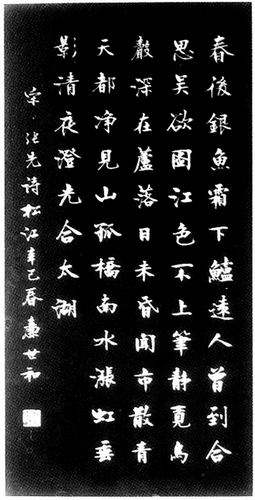 春後銀魚霜下鱸遠人曾到合
思吴欲圖江色不上筆静覓鳥
聲深在蘆落日未昏聞市散青
天都净見山孤橋南水漲虹垂
影清夜澄光合太湖
宋·张先诗松江辛巳春惠世和